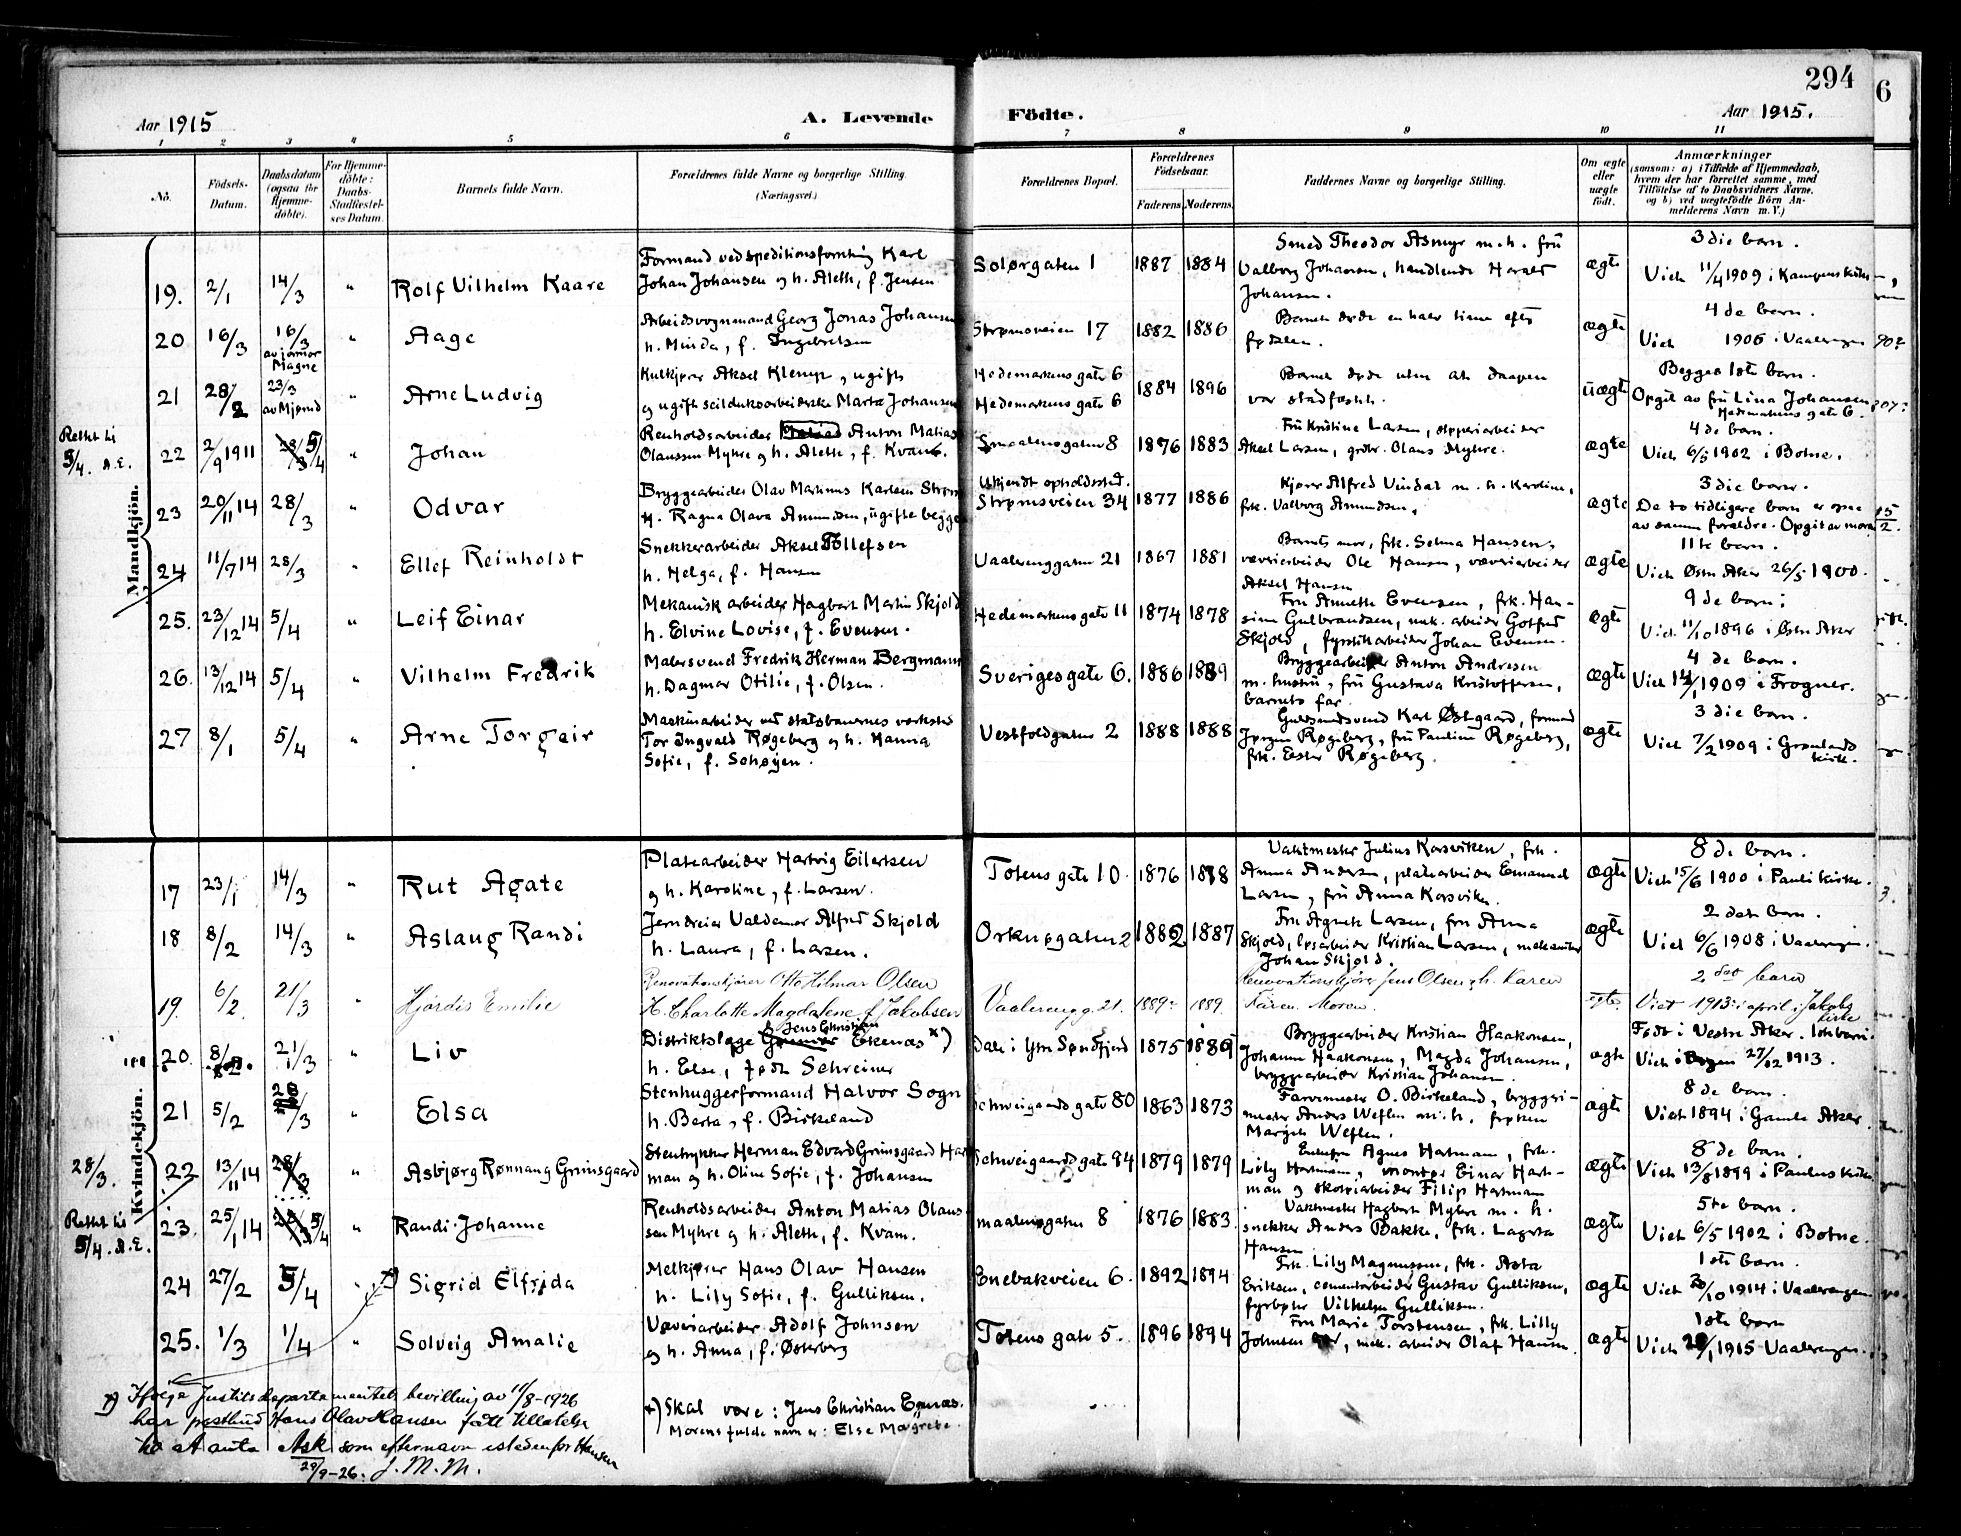 294
6
Aar 1915
A. Levende
Födte.
Aar 1915.
1 2 3 4 5 6 7 8 9 10 11
No.
Födsels-Datum.
Daabsdatum (ogsaa for Hjemme-döbte).
For Hjemme-döbte: Daabs-Stadfæstel-ses Datum.
Barnets fulde Navn.
Forældrenes fulde Navne og borgerlige Stilling. (Næringsvei.)
Forældrenes Bopæl.
Forældrenes Födselsaar.
Faderens. Moderens.
Faddernes Navne og borgerlige Stilling.
Om ægte eller uægte födt.
Anmærkninger
(saasom: a) i Tilfælde af Hjemmedaab, hvem der har forrettet samme, med Tilföielse af to Daabsvidners Navne, og b) ved uægtefödte Börn An-melderens Navn m. V.)
Mandkjön.
19. 2/1 14/3 " Rolf Vilhelm Kaare
Formand ved speditionsforretning Karl
Johan Johansen og h. Aleth, f. Jensen
Solørgaten 1 1887 1884
Smed Theodor Asmyr m. h. frü
Valborg Johansen, handlende Harald
Johansen.
ægte
3die barn.
Viet 11/4 1909 i Kampens kirke
20 16/3 16/3 av jormor Magne " Aage
Arbeidsvognmand Georg Jonas Johansen
h. Minda, f. Ingebretsen
Strømsveien 17 1882 1886
Barnet døde en halv time efter
fødslen.
ægte
4de barn.
Viet 1906 i Vaalerengen
21 28/2 23/3 av Mjønd " Arne Ludvig
Kulkjører Aksel Klemp, ugift
og ugift seildukarbeiderske Marta Johansen
Hedemarkens gate 6
Hedemarkens gate 6
1884 1896
Barnet døde uten at daapen
var stadfæstet.
uægte
Begges 1ste barn.
Opgit av frü Lina Johansen
Hedemarkens gate 6.
Rettet til 5/4. A.E.
22 2/9 1911 28/3 5/4 " Johan
Renholdsarbeider Anton Matias
Olaussen Myhre og h. Aleth, f. Kvam.
Smaalensgaten 8 1876 1883
Frü Kristine Larsen, støperiarbeider
Aksel Larsen, grdbr. Olaus Myhre.
ægte
4de barn.
Viet 6/5 1902 i Botne.
23 20/11 14 28/3 " Odvar
Bryggearbeider Olav Martinus Karlsen Strøm
H. Ragna Olava Amundsen, ugifte begge
Ukjendt opholdssted.
Strømsveien 34 1877 1886
Kjører Alfred Vindal m. h. Karoline,
frk. Valborg Amundsen.
ægte
3die barn.
De to tidligere barn er ogsaa
av samme forældre. Opgit av moren
24 11/7 14 28/3 " Ellef Reinholdt
Snekkerarbeider Aksel Tollefsen
h. Helga, f. Hansen
Vaalerenggaten 21 1867 1881
Barnets mor, frk. Selma Hansen,
væveriarbeider Ole Hansen, væveriarbeider
Aksel Hansen
ægte
11te barn.
Viet Østre Aker 26/5 1900.
25. 23/12 14 5/4 " Leif Einar
Mekanisk arbeider Hagbart Martin Skjold
h. Elvine Lovise, f. Evensen.
Hedemarkens gate 11 1874 1878
Fru Annette Evensen, frk. Han-
sine Gulbrandsen, mek. arbeider Gotfred
Skjold, fyrstikarbeider Johan Evensen.
ægte
9de barn;
Viet 11/10 1896 i Østre Aker
26. 13/12 14 5/4 " Vilhelm Fredrik
Malersvend Fredrik Herman Bergmann
h. Dagmar Otilie, f. Olsen.
Sveriges gate 6. 1886 1889
Bryggearbeider Anton Andresen
m. hustru, frü Gustava Kristoffersen,
barnets far.
ægte
4de barn.
Viet 14/1 1909 i Frogner.
27 8/1 5/4 " Arne Torgeir
Maskinarbeider ved statsbanernes verksted
Tor Ingvald Røgeberg og h. Hanna
Sofie, f. Schøyen.
Vestfoldgaten 2 1888 1888
Guldsmedsvend Karl Østgaard, formand
Jørgen Røgeberg, frü Pauline Røgeberg,
frk. Ester Røgeberg.
ægte
3die barn.
Viet 7/2 1909 i Grønlands kirke.
Kvindekjön.
17 23/1 14/3 " Rut Agate
Platearbeider Hartvig Eilertsen
og h. Karoline, f. Larsen.
Totens gate 10. 1876 1878
Vaktmester Julius Korsviken, frk.
Anna Andersen, platearbeider Emanuel
Larsen, frü Anna Korsviken.
ægte
8de barn.
Viet 15/6 1900 i Pauli kirke.
18 8/2 14/3 " Aslaug Randi
Jerndreier Valdemar Alfred Skjold
h. Laura, f. Larsen.
Orknøgaten 2 1882 1887
Fru Agnete Larsen, fru Anna
Skjold, løsarbeider Kristian Larsen, mekaniker
Johan Skjold.
ægte
2det barn.
Viet 6/6 1908 i Vaalerengen.
19. 6/2 21/3 " Hjørdis Emilie
Renovationskjører Otto Hilmar Olsen
H. Charlotte Magdalene f. Jakobsen
Vaalerengg. 21. 1889 1889
Renovationskjører Jens Olsen og h. Karen
Karen Moren.
egte
2det barn
Viet 1913 i april i Jakobs kirke
20. 8/2. 21/3 " Liv
Distriktslæge Jens Christian Ekenæs *)
h. Else, født Schreiner
Dale i Ytre Søndfjord 1875 1889
Bryggearbeider Kristian Haakonsen,
Johanne Haakonsen, Magda Johansen,
bryggearbeider Kristian Johansen.
ægte
Født i Vestre Aker. 1ste barn.
Viet i Bergen 27/12 1913.
21 5/2 28/3 " Elsa
Stenhuggerformand Halvor Sogn
h. Berta, f. Birkeland
Schweigaards gate 80 1863 1873
Farvermester O. Birkeland, bryggeri-
mester Anders Weflen m. h. frøken
Margit Weflen.
ægte
8de barn.
Viet 1894 i Gamle Aker
28/3.
22 13/11 14 28/3 " Asbjørg Rønnaug Grimsgaard
Stentrykker Herman Edvard Grimsgaard Hart
man og h. Oline Sofie, f. Johansen
Schweigaards gate 94 1879 1879
Enkefru Agnes Hartmann, frk.
Lily Hartmann, montør Einar Hart-
man og skotøiarbeider Filip Hartmann
ægte
8de barn.
Viet 13/8 1899 i Paulus kirke
Rettet til 5/4. A.E.
23. 25/1 14 28/3 5/4 " Randi Johanne
Renholdsarbeider Anton Matias Olaus-
sen Myhre og h. Aleth, f. Kvam.
Smaalensgaten 8 1876 1883
Vaktmester Hagbart Myhre m. h.
snekker Anders Bakke, frk. Lagerta
Hansen
ægte
5te barn.
Viet 6/5 1902 i Botne.
24 27/2 5/4 " Sigrid Elfrida
Melkjører Hans Olav Hansen
h. Lily Sofie, f. Gulliksen.
Enebakveien 6. 1892 1894
Frk. Lily Magnussen, frk. Asta
Eriksen, cementarbeider Gustav Gulliksen,
fyrbøter Vilhelm Gulliksen.
ægte
1ste barn.
Viet 20/10 1914 i Vaalerengen
25. 1/3 1/4 " Solveig Amalie
Væveriarbeider Adolf Johnsen
og h. Anna, f. Østerberg
Totens gate 5. 1896 1894
Fru Marie Torstensen, frk. Lilly
Johnsen, mek. arbeider Olaf Hansen.
ægte
1ste barn
Viet 29/1 1915 Vaalerengen.
Ifølge Justitsdepartementets bevilling av 11/8-1926
har postbud Hans Olav Hansen fått tillatelse
til at anta Ask som efternavn istedenfor Hansen
29/9-26. J. M. M.
*) Skal være: Jens Christian Egenæs.
Morens fulde navn er: Else Margrete.